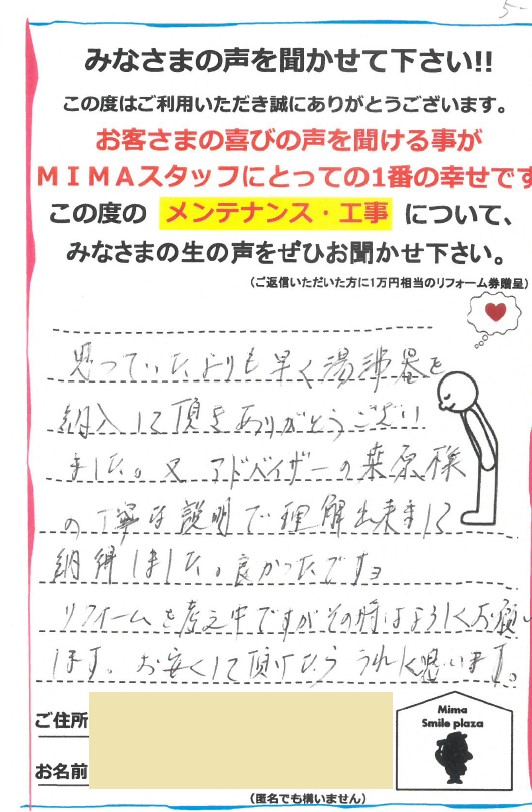 5-
みなさまの声を聞かせて下さい!!
この度はご利用いただき誠にありがとうございます。
お客さまの喜びの声を聞ける事が
MIMAスタッフにとっての1番の幸せです
この度の メンテナンス・工事 について、
みなさまの生の声をぜひお聞かせ下さい。
(ご返信いただいた方に1万円相当のリフォーム券贈呈)
思っていたよりも早く湯沸器を
納入して頂きありがとうござい
ました。又 アドバイザーの 様
の丁寧な説明で理解出来まして
納得しました。良かったですョ
リフォームを考え中ですがその時はよろしくお願い
します。お安くして頂けたらうれしく思います。
ご住所
お名前
(匿名でも構いません)
Mima
Smile plaza